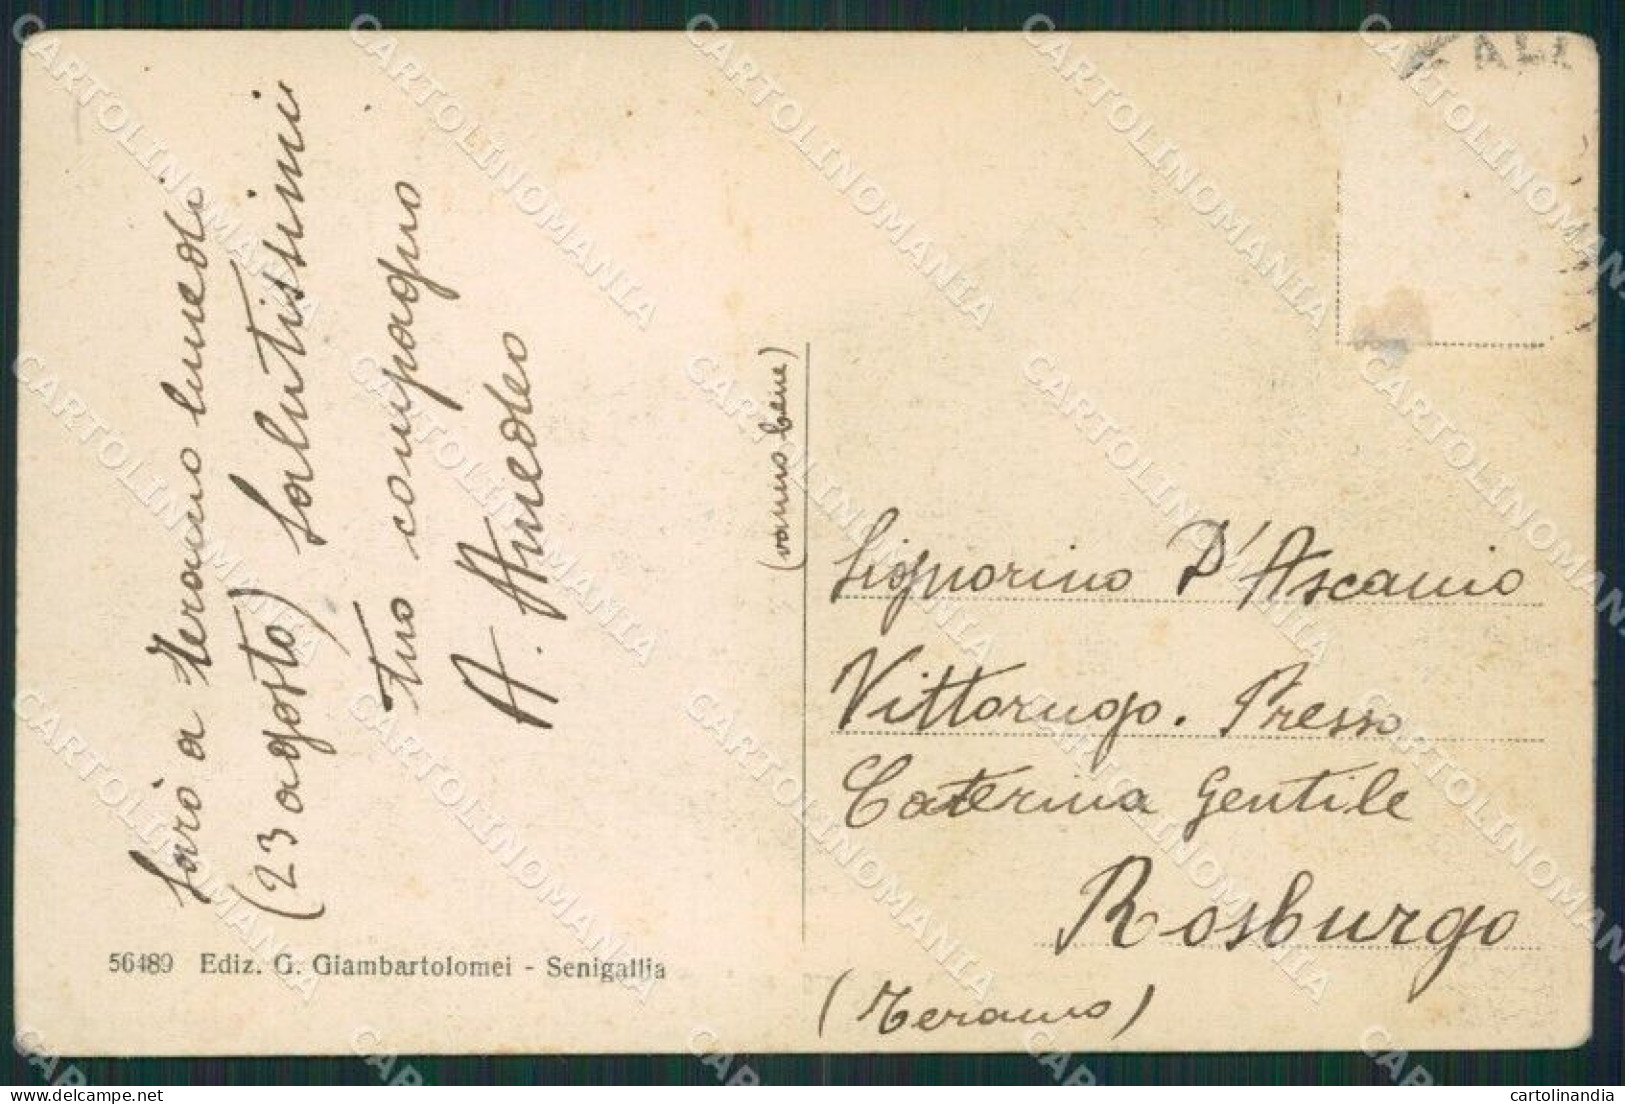 Sarò a Teramo lunedì
(23 agosto) Salutissimi
tuo compagno
A. Amedeo
Signorino D'Ascanio
Vittorugo. Presso
Caterina Gentile
Rosburgo
(Teramo)
56489 Ediz. G. Giambartolomei - Senigallia
CARTOLINOMANIA
cartolinandia